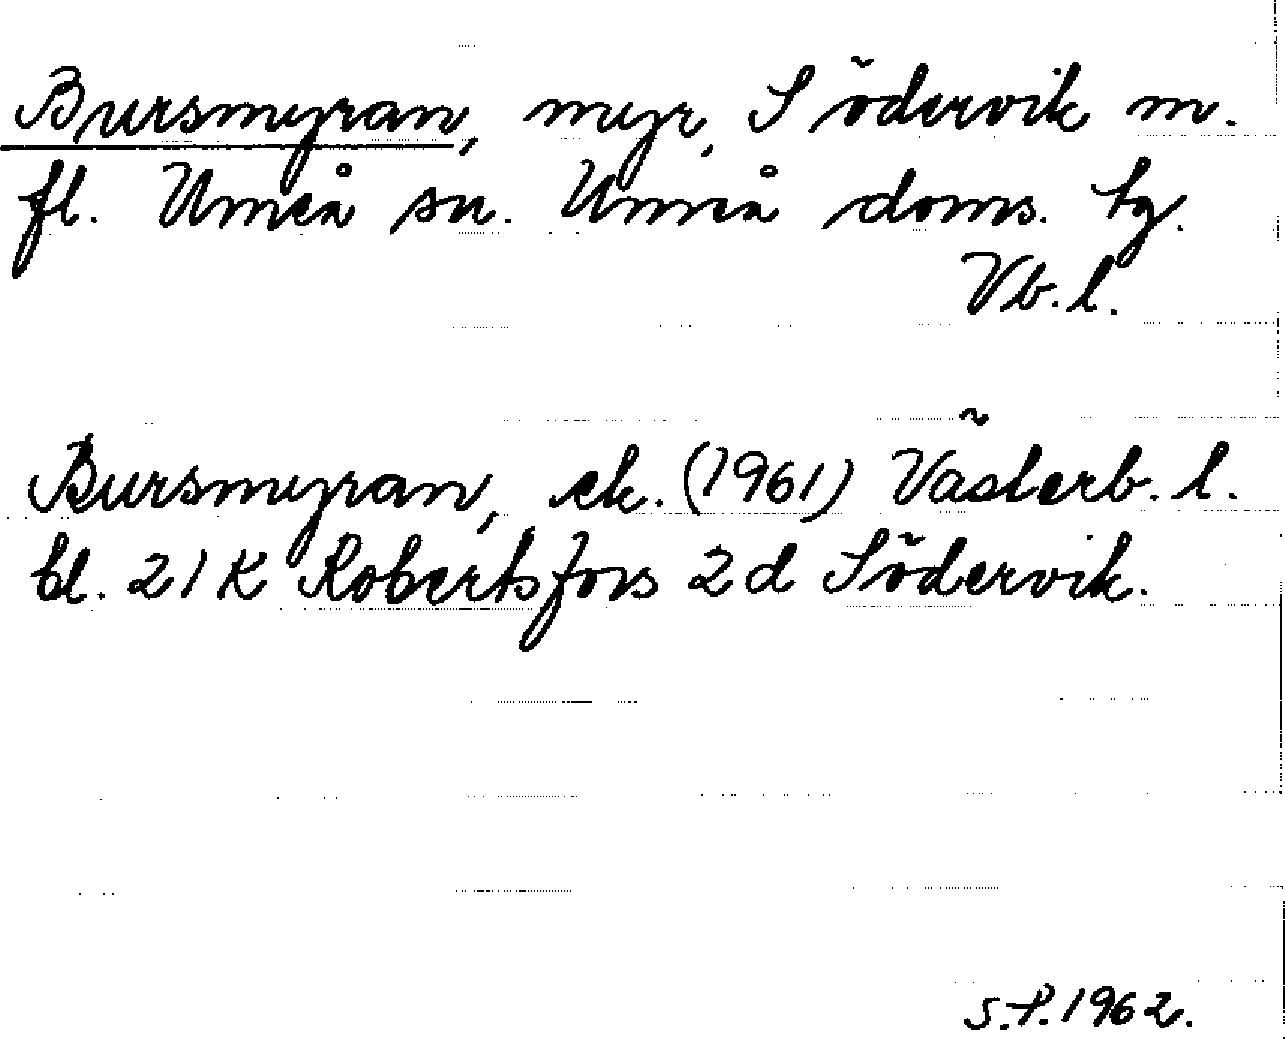 Bursmyran, myr, Södervik m.
fl. Umeå sn. Umeå doms. tg.
Vb. l.
Bursmyran, ek. (1961) Västerb. l.
bl. 21 K Robertsfors 2 d Södervik.
S.P. 1962.